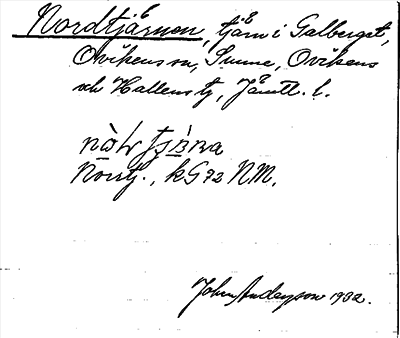 Nordtjärnen, tjärn i Galberget,
Ovikens sn, Summe, Ovikens
och Hallens tg, Jämtl. l.
Norstj., k G 92 NM.
John Anderson 1932.